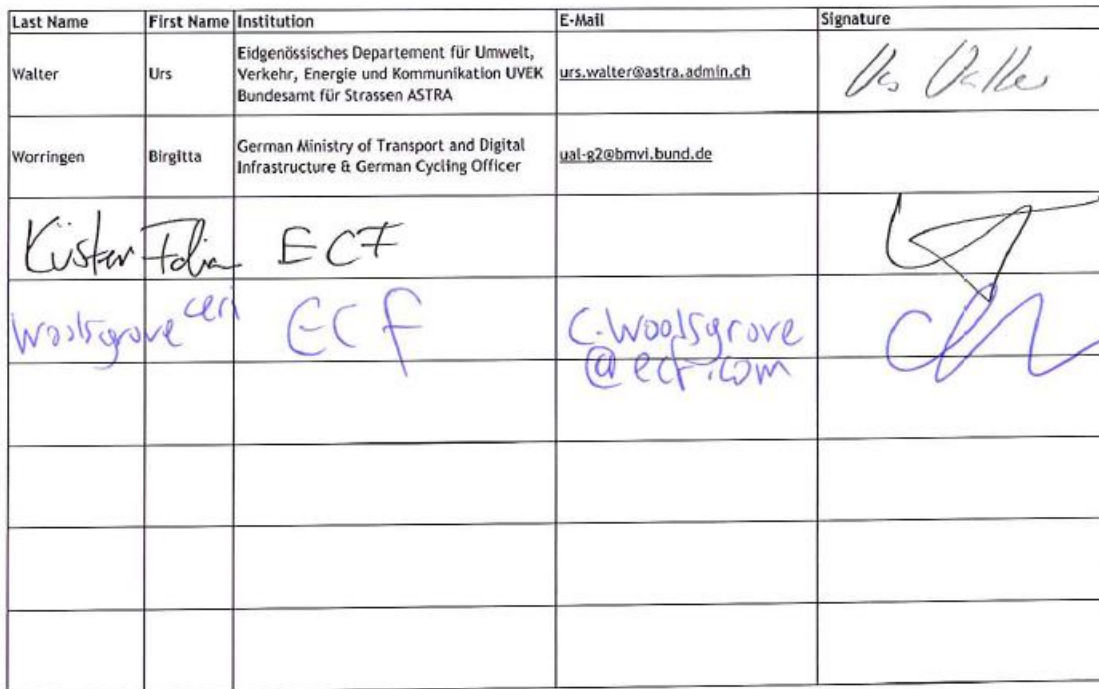 Last Name First Name Institution E-Mail Signature
Walter Urs Eidgenössisches Departement für Umwelt,
Verkehr, Energie und Kommunikation UVEK
Bundesamt für Strassen ASTRA urs.walter@astra.admin.ch Urs Walter
Worringen Birgitta German Ministry of Transport and Digital
Infrastructure & German Cycling Officer ual-g2@bmvi.bund.de
Küster Fabian ECF
Woolsgrove Ceri ECF C.Woolsgrove
@ecf.com